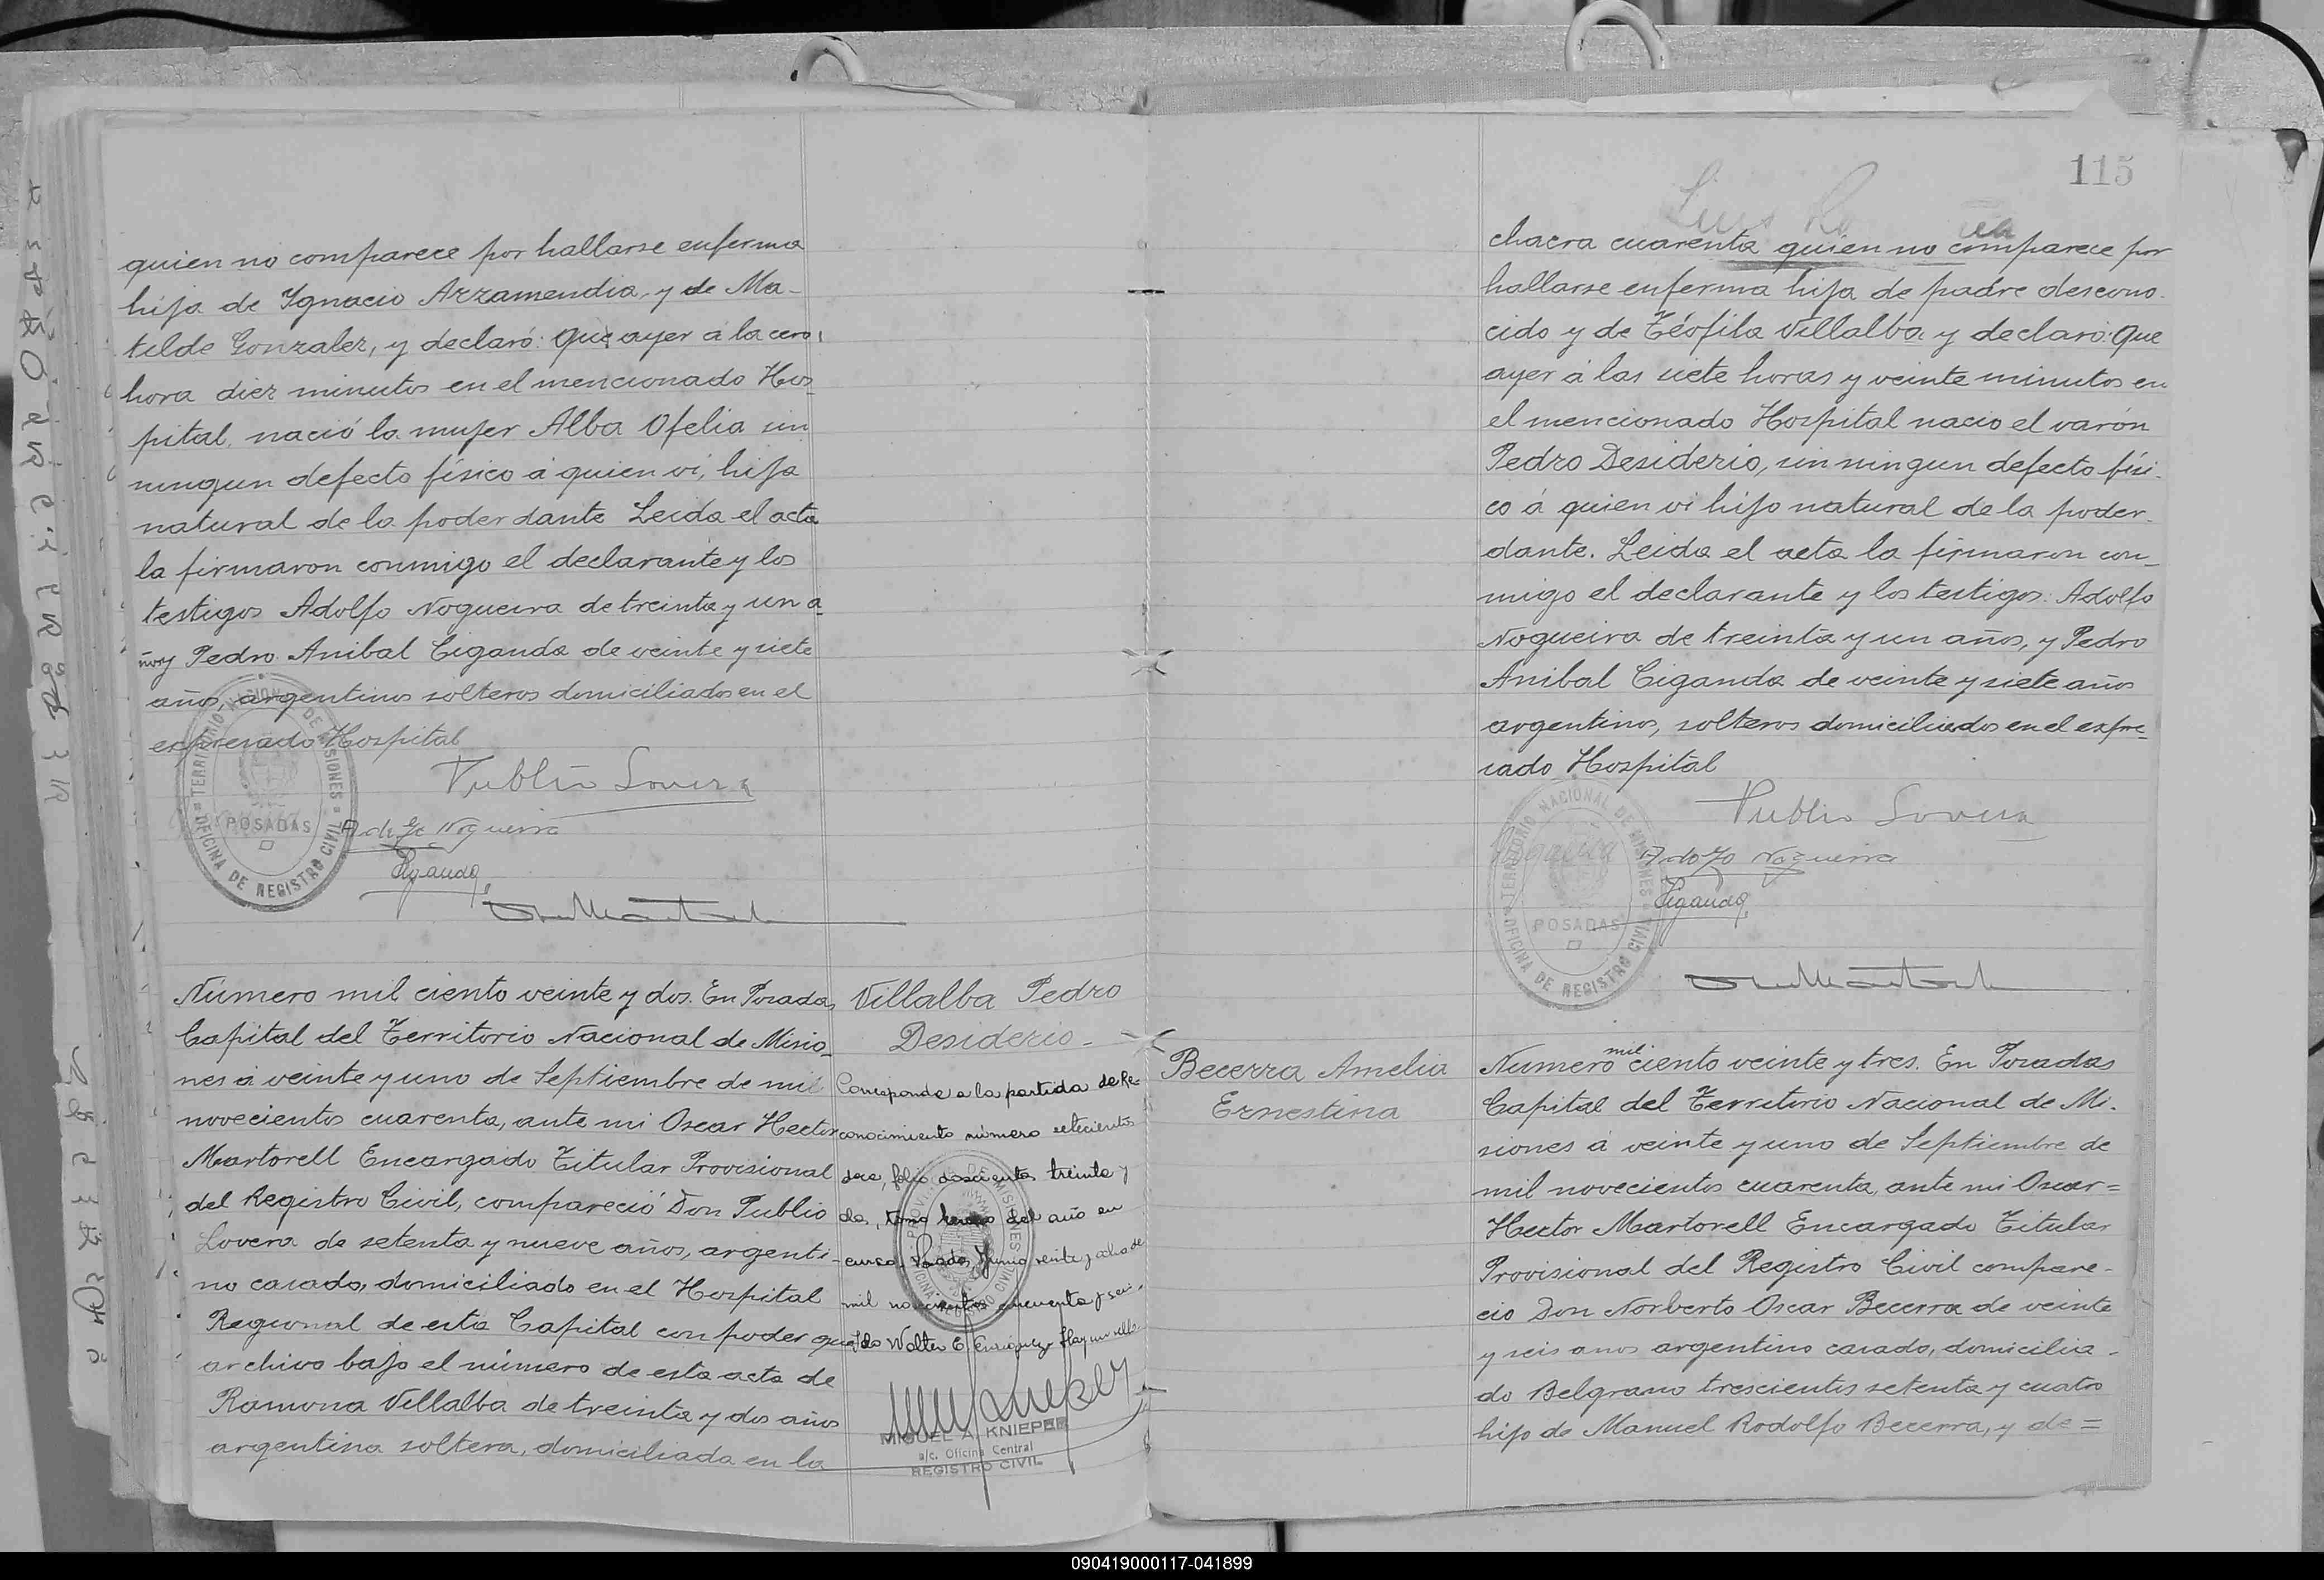 quien no comparece por hallarse enferma
hija de Ygnacio Arzamendia, y de Ma-
tilde Gonzalez, y declaró: Que ayer á la cero
hora diez minutos en el mencionado Hos-
pital, nació la mujer Alba Ofelia sin
ningun defecto físico á quien ví, hija
natural de la poderdante Leida el acta
la firmaron conmigo el declarante y los
testigos Adolfo Nogueira de treinta y un a-
ños y Pedro Anibal Ciganda de veinte y siete
años, argentinos solteros domiciliados en el
expresado Hospital
Publio Lovera
Adolfo Nogueira
Ciganda
TERRITORIO NACIONAL DE MISIONES
POSADAS
OFICINA DE REGISTRO CIVIL
Número mil ciento veinte y dos. En Posadas,
Capital del Territorio Nacional de Misio-
nes á veinte y uno de Septiembre de mil
novecientos cuarenta, ante mi Oscar Hector
Martorell Encargado Titular Provisional
del Registro Civil, compareció Don Publio
Lovera de setenta y nueve años, argenti-
no casado, domiciliado en el Hospital
Regional de esta Capital con poder que
archivo bajo el número de esta acta de
Ramona Villalba de treinta y dos años
argentina soltera, domiciliada en la
Villalba Pedro
Desiderio -
Corresponde a la partida de Re-
conocimiento número setecientos
doce, folio doscientos treinta y
dos, tomo tercero del año en
curso. Posadas, Junio veinte y ocho de
mil novecientos cincuenta y seis.
MIGUEL A. KNIEPER
a/c. Oficina Central
REGISTRO CIVIL
115
chacra cuarenta quien no comparece por
hallarse enferma hija de padre descono-
cido y de Teófila Villalba y declaró: Que
ayer á las siete horas y veinte minutos en
el mencionado Hospital nacio el varón
Pedro Desiderio, sin ningun defecto físi-
co á quien vi hijo natural de la poder-
dante. Leida el acta la firmaron con-
migo el declarante y los testigos: Adolfo
Nogueira de treinta y un años, y Pedro
Anibal Ciganda de veinte y siete años
argentinos, solteros domiciliados en el expre-
sado Hospital
Publio Lovera
Adolfo Nogueira
Ciganda
TERRITORIO NACIONAL DE MISIONES
POSADAS
OFICINA DE REGISTRO CIVIL
Becerra Amelia
Ernestina
Numero mil ciento veinte y tres. En Posadas
Capital del Territorio Nacional de Mi-
siones á veinte y uno de Septiembre de
mil novecientos cuarenta, ante mi Oscar =
Hector Martorell Encargado Titular
Provisional del Registro Civil compare-
cio Don Norberto Oscar Becerra de veinte
y seis anos argentino casado, domicilia-
do Belgrano trescientos setenta y cuatro
hijo de Manuel Rodolfo Becerra, y de =
090419000117-041899